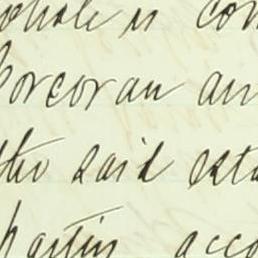 whole is con
Corcoran an
the said esta
parties acco